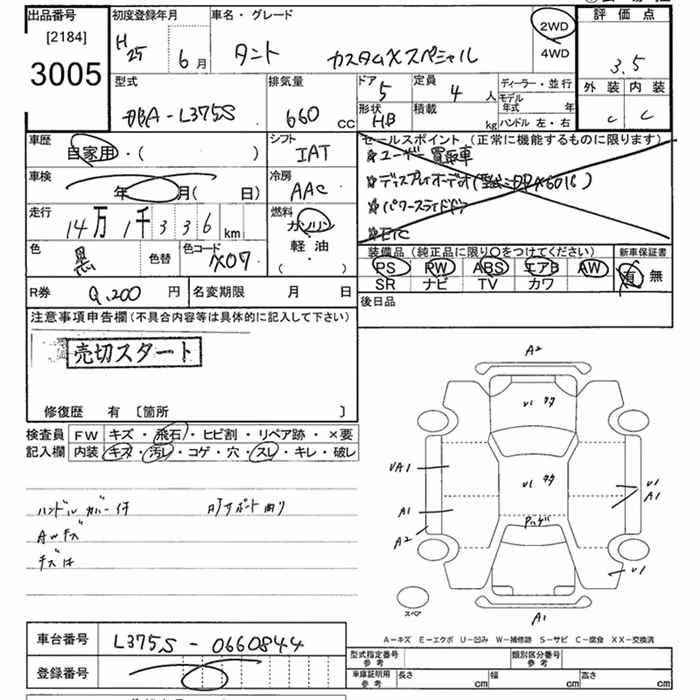 出品番号 初度登録年月 車名・グレード 評価点
[2184]
3005
H25 6月 タント カスタムXスペシャル 2WD 4WD 3.5
型式 排気量 ドア 定員 ディーラー・並行 外装 内装
DBA-L375S 660 CC 5 4人 モデル年式 年 C C
形状 HB 積載 kg ハンドル 左・右
車歴 シフト セールスポイント (正常に機能するものに限ります)
自家用・( ) IAT ユーザー買取車
車検 冷房 ディスプレイオーディオ
年 月( 日) AAC パワースライドドア
走行 燃料 ETC
14万1千336km ガソリン 軽油 ・( )
色 黒 色替 色コード X07
装備品 (純正品に限り〇をつけてください) 新車保証書
PS PW ABS エアB AW 有 無
SR ナビ TV カワ
R券 9,200円 名変期限 月 日 後日品
注意事項申告欄(不具合内容等は具体的に記入して下さい)
売切スタート
修復歴 有 〔箇所 〕
検査員 FW キズ・飛石・ヒビ割・リペア跡・×要
記入欄 内装 キズ・汚レ・コゲ・穴・スレ・キレ・破レ
ハンドルカバー付
AWキズ
A2
U1
UA1 U1
A1 A1
A2
U1
スペア A1
A-キズ E-エクボ U-凹み W-補修跡 S-サビ C-腐食 XX-交換済
車台番号 L375S-0660844
登録番号
型式指定番号 参考 類別区分番号 参考
車庫証明用 参考 長さ cm 幅 cm 高さ cm